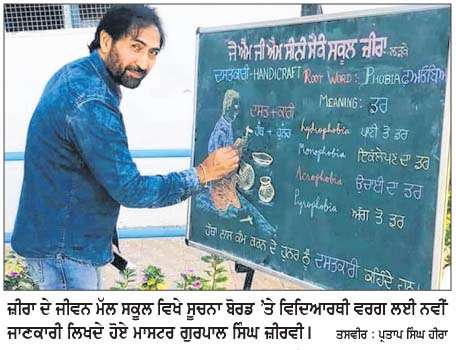 ਜੇ ਐਮ ਜੀ ਐਮ ਸੀਨੀ ਸੈਕੰ ਸਕੂਲ ਜ਼ੀਰਾ ਲੜਕੇ
ਦਸਤਕਾਰੀ-HANDICRAFT ROOT WORD: PHOBIA ਫੋਬੀਆ
MEANING: ਡਰ
ਦਸਤ+ਕਾਰੀ
ਹੱਥ + ਹੁਨਰ
hydrophobia ਪਾਣੀ ਤੋਂ ਡਰ
Monophobia ਇਕੱਲੇਪਣ ਦਾ ਡਰ
Acrophobia ਉਚਾਈ ਦਾ ਡਰ
Pyrophobia ਅੱਗ ਤੋਂ ਡਰ
ਹੱਥਾਂ ਨਾਲ ਕੰਮ ਕਰਨ ਦੇ ਹੁਨਰ ਨੂੰ ਦਸਤਕਾਰੀ ਕਹਿੰਦੇ ਹਨ
ਜ਼ੀਰਾ ਦੇ ਜੀਵਨ ਮੱਲ ਸਕੂਲ ਵਿਖੇ ਸੂਚਨਾ ਬੋਰਡ 'ਤੇ ਵਿਦਿਆਰਥੀ ਵਰਗ ਲਈ ਨਵੀਂ
ਜਾਣਕਾਰੀ ਲਿਖਦੇ ਹੋਏ ਮਾਸਟਰ ਗੁਰਪਾਲ ਸਿੰਘ ਜ਼ੀਰਵੀ। ਤਸਵੀਰ : ਪ੍ਰਤਾਪ ਸਿੰਘ ਹੀਰਾ